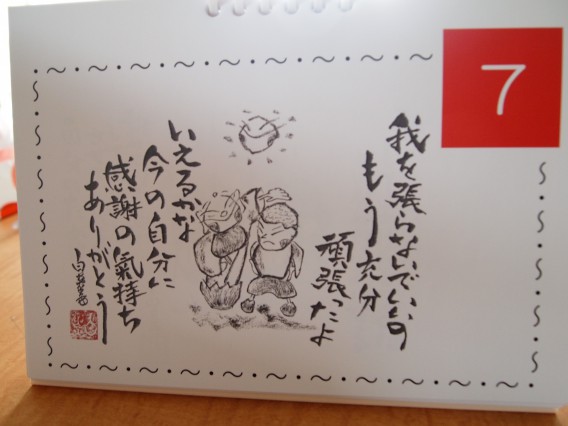 7
我を張らないでいいの
もう充分
頑張ったよ
いえるかな
今の自分に
感謝の氣持ち
ありがとう